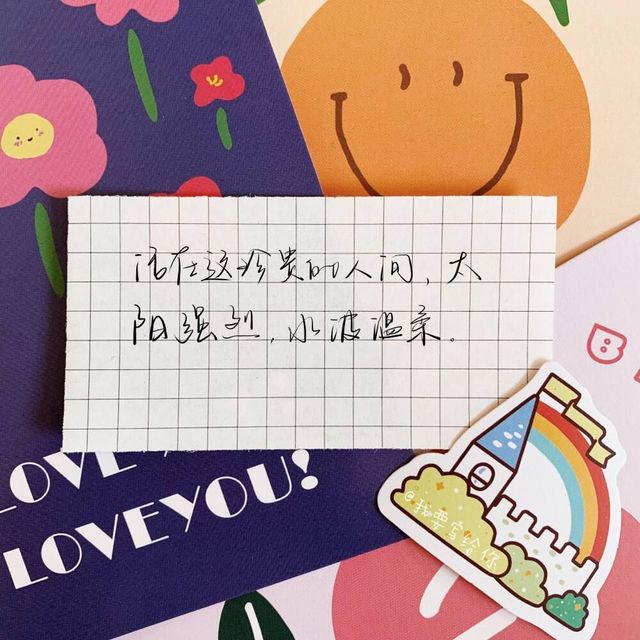 活在这珍贵的人间，太
阳强烈，水波温柔。
LOVE
LOVEYOU!
B
@我要写给你